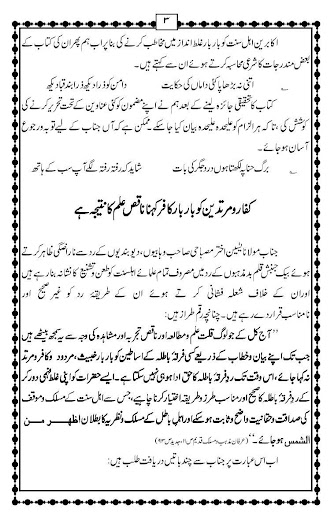 ۳
اکابرین اہل سنت کو بار بار غلط انداز میں مخاطب کرنے کی بنا پر اب ہم پھر ان کی کتاب کے
بعض مندرجات کا شرعی محاسبہ کرتے ہوئے ان سے کہتے ہیں۔
اتنی نہ بڑھا پاکئی داماں کی حکایت
دامن کو ذرا دیکھ ذرا بند قبا دیکھ
کتاب کا تحقیقی جائزہ لینے کے بعد ہم نے اپنے مضمون کو کئی عناوین کے تحت تحریر کرنے کی
کوشش کی، تاکہ ہر الزام کو علیحدہ علیحدہ بیان کیا جا سکے ممکن ہے کہ آں جناب کے لیے توبہ و رجوع
آسان ہو جائے۔
برگ حنا پہ لکھتا ہوں درد جگر کی بات
شاید کہ رفتہ رفتہ لگے آپ سب کے ہاتھ
کفار و مرتدین کو بار بار کافر کہنا ناقص علم کا نتیجہ ہے
جناب مولانا یٰسین اختر مصباحی صاحب وہابیوں، دیوبندیوں کے رد سے ناراضگی ظاہر کرتے
ہوئے بیک جنبش قلم بد مذہبوں کے رد میں مصروف تمام علمائے اہلسنت کو طعن و تشنیع کا نشانہ بنا رہے ہیں
اور ان کے خلاف شعلہ فشانی کر تے ہوئے ان کے طریقۂ رد کو غیر صحیح اور
نامناسب قرار دے رہے ہیں۔ چنانچہ رقم طراز ہیں:
’’آج کل کے جو لوگ قلت علم و مطالعہ اور ناقص تجربہ اور مشاہدہ کی وجہ سے یہ سمجھ بیٹھے ہیں
جب تک اپنے بیان و خطاب کے ذریعے کسی فرقۂ باطلہ کے اساطین کو بار بار خبیث، مردود و کافر و مرتد
نہ کہا جائے، اس وقت تک رد فرقۂ باطلہ کا حق ادا ہو ہی نہیں سکتا ہے۔ ایسے حضرات کو اپنی غلط فہمی دور کر
کے رد فرقۂ باطلہ کا صحیح اور مناسب طرز و طریقہ اختیار کرنا چاہیے، جس سے اہل سنت کے مسلک و موقف
کی صداقت و حقانیت واضح و ثابت ہو سکے اور اہل باطل کے مسلک و نظریہ کا بطلان اظہر من
الشمس ہو جائے۔‘‘ (عرفان مذہب و مسلک قدیم ص۱۰، جدید ص۹۳)
اب اس عبارت پر جناب سے چند باتیں دریافت طلب ہیں: